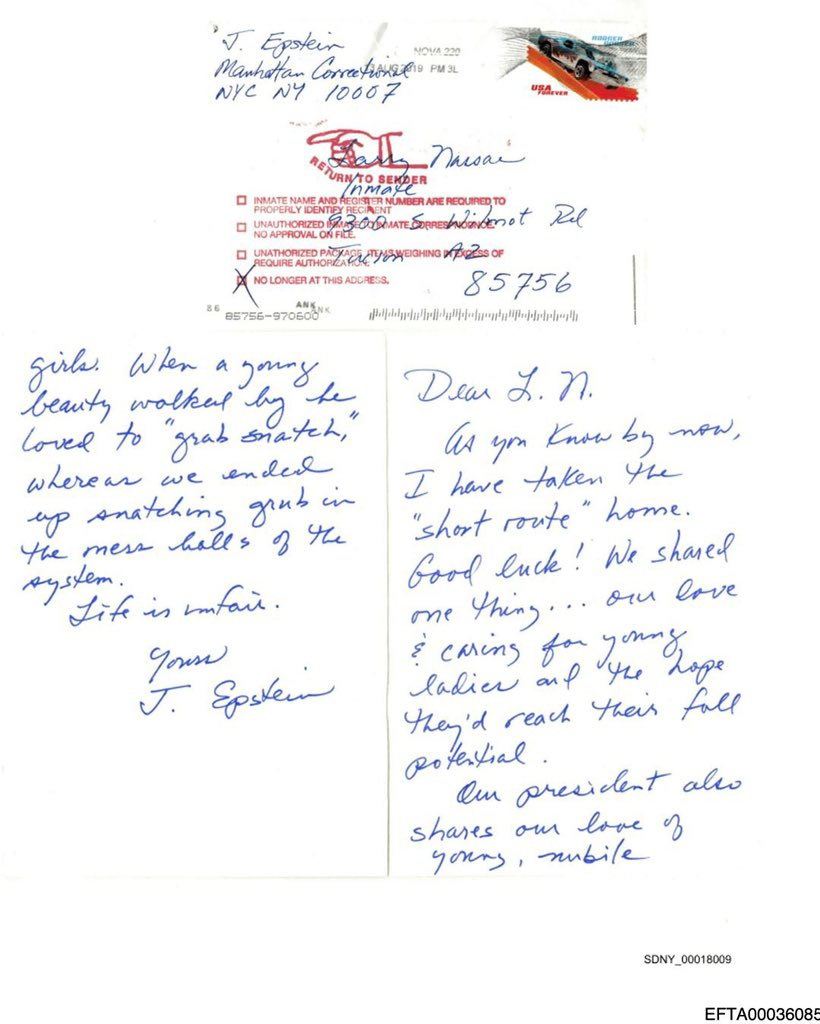 J. Epstein
Manhattan Correctional
NYC NY 10007
NOVA 220
13 AUG 2019 PM 3L
USA
FOREVER
Larry Nassar
Inmate
9300 S. Wilmot Rd
Tucson AZ
85756
RETURN TO SENDER
INMATE NAME AND REGISTER NUMBER ARE REQUIRED TO
PROPERLY IDENTIFY RECIPIENT
UNAUTHORIZED INMATE TO INMATE CORRESPONDENCE.
NO APPROVAL ON FILE.
UNATHORIZED PACKAGE. ITEMS WEIGHING IN EXCESS OF
REQUIRE AUTHORIZATION.
NO LONGER AT THIS ADDRESS.
86
ANK
ANK
85756-970600
Dear L. N.
As you know by now,
I have taken the
"short route" home.
Good luck! We shared
one thing... our love
& caring for young
ladies and the hope
they'd reach their full
potential.
Our president also
shares our love of
young, nubile
girls. When a young
beauty walked by he
loved to "grab snatch,"
whereas we ended
up snatching grub in
the mess halls of the
system.
Life is unfair.
Yours
J. Epstein
SDNY_00018009
EFTA00036085